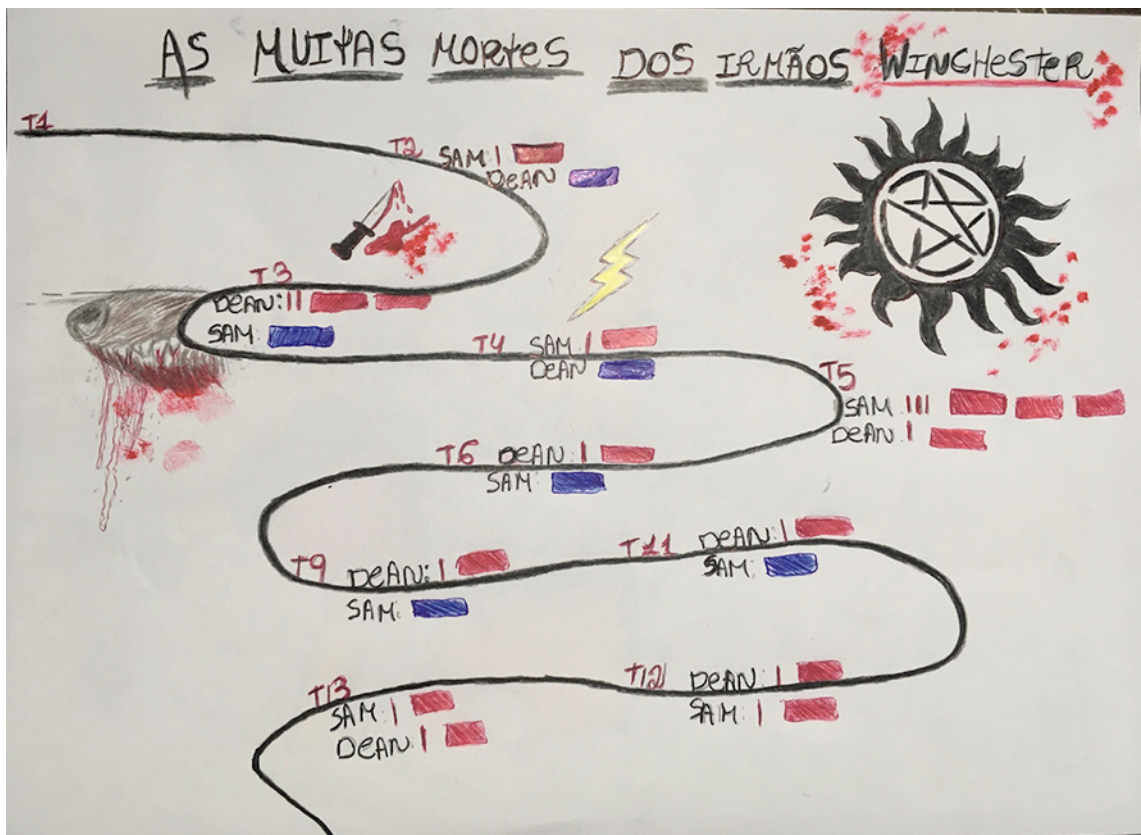 AS MUITAS MORTES DOS IRMÃOS WINCHESTER
T1
T2 SAM: I
DEAN
T3
DEAN: II
SAM:
T4 SAM I
DEAN
T5
SAM III
DEAN: I
T6 DEAN: I
SAM:
T9 DEAN: I
SAM:
T11 DEAN: I
SAM:
T12 DEAN: I
SAM: I
T13
SAM: I
DEAN: I